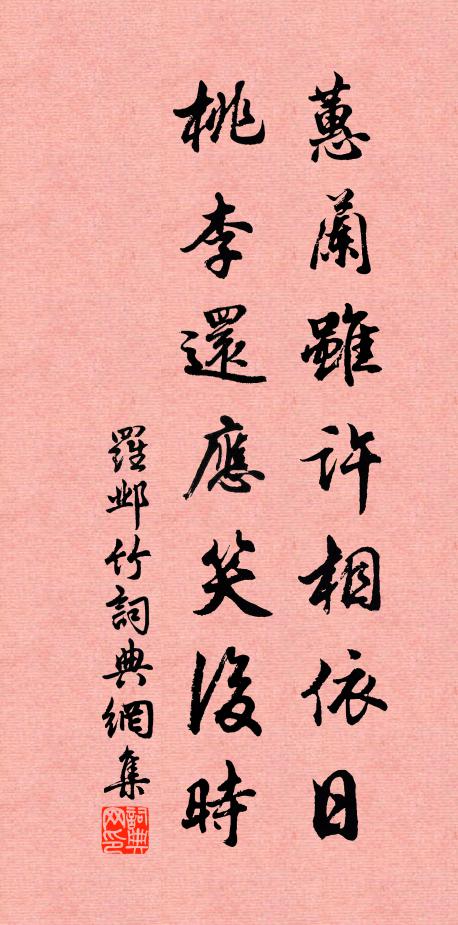 蕙蘭雖許相依日
桃李還應笑後時
羅鄴竹詞典網集
詞典网印